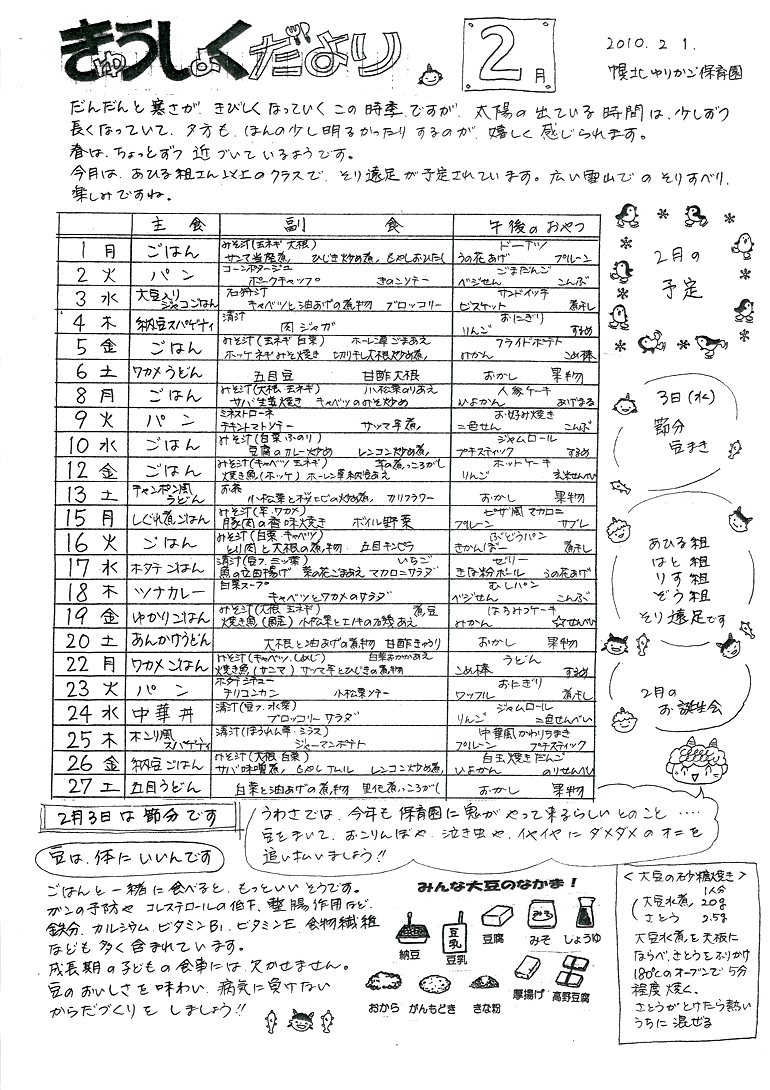 きゅうしょくだより
2月
2010. 2 1.
幌北ゆりかご保育園
だんだんと寒さが、きびしくなっていくこの時季ですが、太陽の出ている時間は、少しずつ
長くなっていて、夕方も、ほんの少し明るかったりするのが、嬉しく感じられます。
春は、ちょっとずつ近づいているようです。
今月は、あひる組さん以上のクラスで、そり遠足が予定されています。広い雪山でのそりすべり、
楽しみですね。
主食 副食 午後のおやつ
1 月 ごはん みそ汁(玉ネギ 大根) サンマ当座煮 ひじき炒め煮 もやしおひたし ドーナツ うの花あげ プルーン
2 火 パン コーンポタージュ ポークチャップ きのこソテー ごまだんご ベジせん こんぶ
3 水 大豆入りジャコごはん 石狩汁 キャベツと油あげの煮物 ブロッコリー サンドイッチ ビスケット 煮干し
4 木 納豆スパゲティ 清汁 肉ジャガ おにぎり りんご するめ
5 金 ごはん みそ汁(玉ネギ 白菜) ホーレン草ごまあえ ホッケネギみそ焼き 切り干し大根炒め煮 フライドポテト みかん こめ棒
6 土 ワカメうどん 五目豆 甘酢大根 おかし 果物
8 月 ごはん みそ汁(大根 玉ネギ) 小松菜のりあえ サバ生姜焼き キャベツのみそ炒め 人参ケーキ いよかん あげまる
9 火 パン ミネストローネ チキントマトソテー サツマ芋煮 お好み焼き 二色せん こんぶ
10 水 ごはん みそ汁(白菜 ふのり) 豆腐のカレー炒め レンコン炒め煮 ジャムロール プチスティック するめ
12 金 ごはん みそ汁(キャベツ 玉ネギ) 芋の煮っころがし 焼き魚(ホッケ) ホーレン草納豆あえ ホットケーキ りんご 玄米せんべい
13 土 チャンポン風うどん お茶 小松菜と桜エビの炒め煮 カリフラワー おかし 果物
15 月 しぐれ煮ごはん みそ汁(芋、ワカメ) 豚肉の香味焼き ボイル野菜 ピザ風マカロニ プルーン サブレ
16 火 ごはん みそ汁(白菜 キャベツ) とり肉と大根の煮物 五目キンピラ ぶどうパン 煮干し
17 水 ホタテごはん 清汁(豆フ、三ツ葉) いちご 魚の立田揚げ 菜の花ごまあえ マカロニサラダ ゼリー きな粉ボール うの花あげ
18 木 ツナカレー 白菜スープ キャベツとワカメのサラダ むしパン ベジせん こんぶ
19 金 ゆかりごはん みそ汁(大根 玉ネギ) 煮豆 焼き魚 小松菜とエノキの あえ はちみつケーキ みかん ☆せんべい
20 土 あんかけうどん 大根と油あげの煮物 甘酢きゅうり おかし 果物
22 月 ワカメごはん みそ汁(キャベツ、しめじ) 白菜おかかあえ 焼き魚(サンマ) サツマ芋とひじきの煮物 うどん こめ棒 するめ
23 火 パン ホタテシチュー チリコンカン 小松菜ソテー おにぎり ワッフル 煮干し
24 水 中華丼 清汁(豆フ、水菜) ブロッコリーサラダ ジャムロール りんご 二色せんべい
25 木 スパゲティ 清汁(ほうれん草・シラス) ジャーマンポテト 中華風かわりちまき プルーン プチスティック
26 金 納豆ごはん みそ汁(大根 白菜) サバ味噌煮 もやしナムル レンコン炒め煮 白玉焼きだんご いよかん のりせんべい
27 土 五目うどん 白菜と油あげの煮物 里芋煮っころがし おかし 果物
2月の
予定
3日(水)
節分
豆まき
あひる組
はと組
りす組
ぞう組
そり遠足です
2月の
お誕生会
2月3日は節分です
うわさでは、今年も保育園に鬼がやって来るらしいとのこと‥‥
豆をまいて、おこりんぼや、泣き虫や、イヤイヤにダメダメのオニを
追い払いましょう!!
豆は、体にいいんです
ごはんと一緒に食べると、もっといいそうです。
ガンの予防やコレステロールの低下、整腸作用など、
鉄分、カルシウム、ビタミンB1、ビタミンE、食物繊維
なども多く含まれています。
成長期の子どもの食事には、欠かせません。
豆のおいしさを味わい、病気に負けない
からだづくりをしましょう!!
みんな大豆のなかま!
納豆
豆乳
豆腐
みそ
しょうゆ
おから
がんもどき
きな粉
厚揚げ
高野豆腐
<大豆の砂糖焼き>
1人分
大豆水煮 20g
さとう 2.5g
大豆水煮を天板に
ならべ、さとうをふりかけ
180°Cのオーブンで5分
程度焼く。
さとうがとけたら熱い
うちに混ぜる